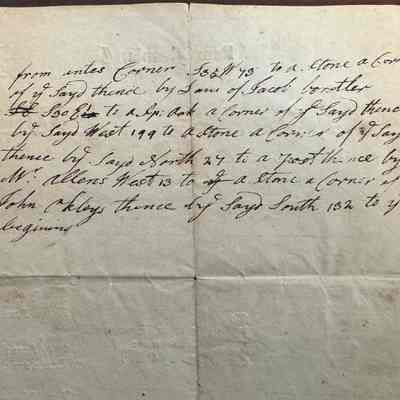 from untes Corner S35W 73 to a Stone a Corn
of yᵉ Sayd thence by Land of Jacob
S30E to a Sp: Oak a Corner of yᵉ Sayd thenc
by yᵉ Sayd West 199 to a Stone a Corner of yᵉ Say
thence by yᵉ Sayd North 27 to a Post thence by
Mʳ Allens West 13 to a Stone a Corner of
John Okleys thence by yᵉ Sayd South 132 to y
begining